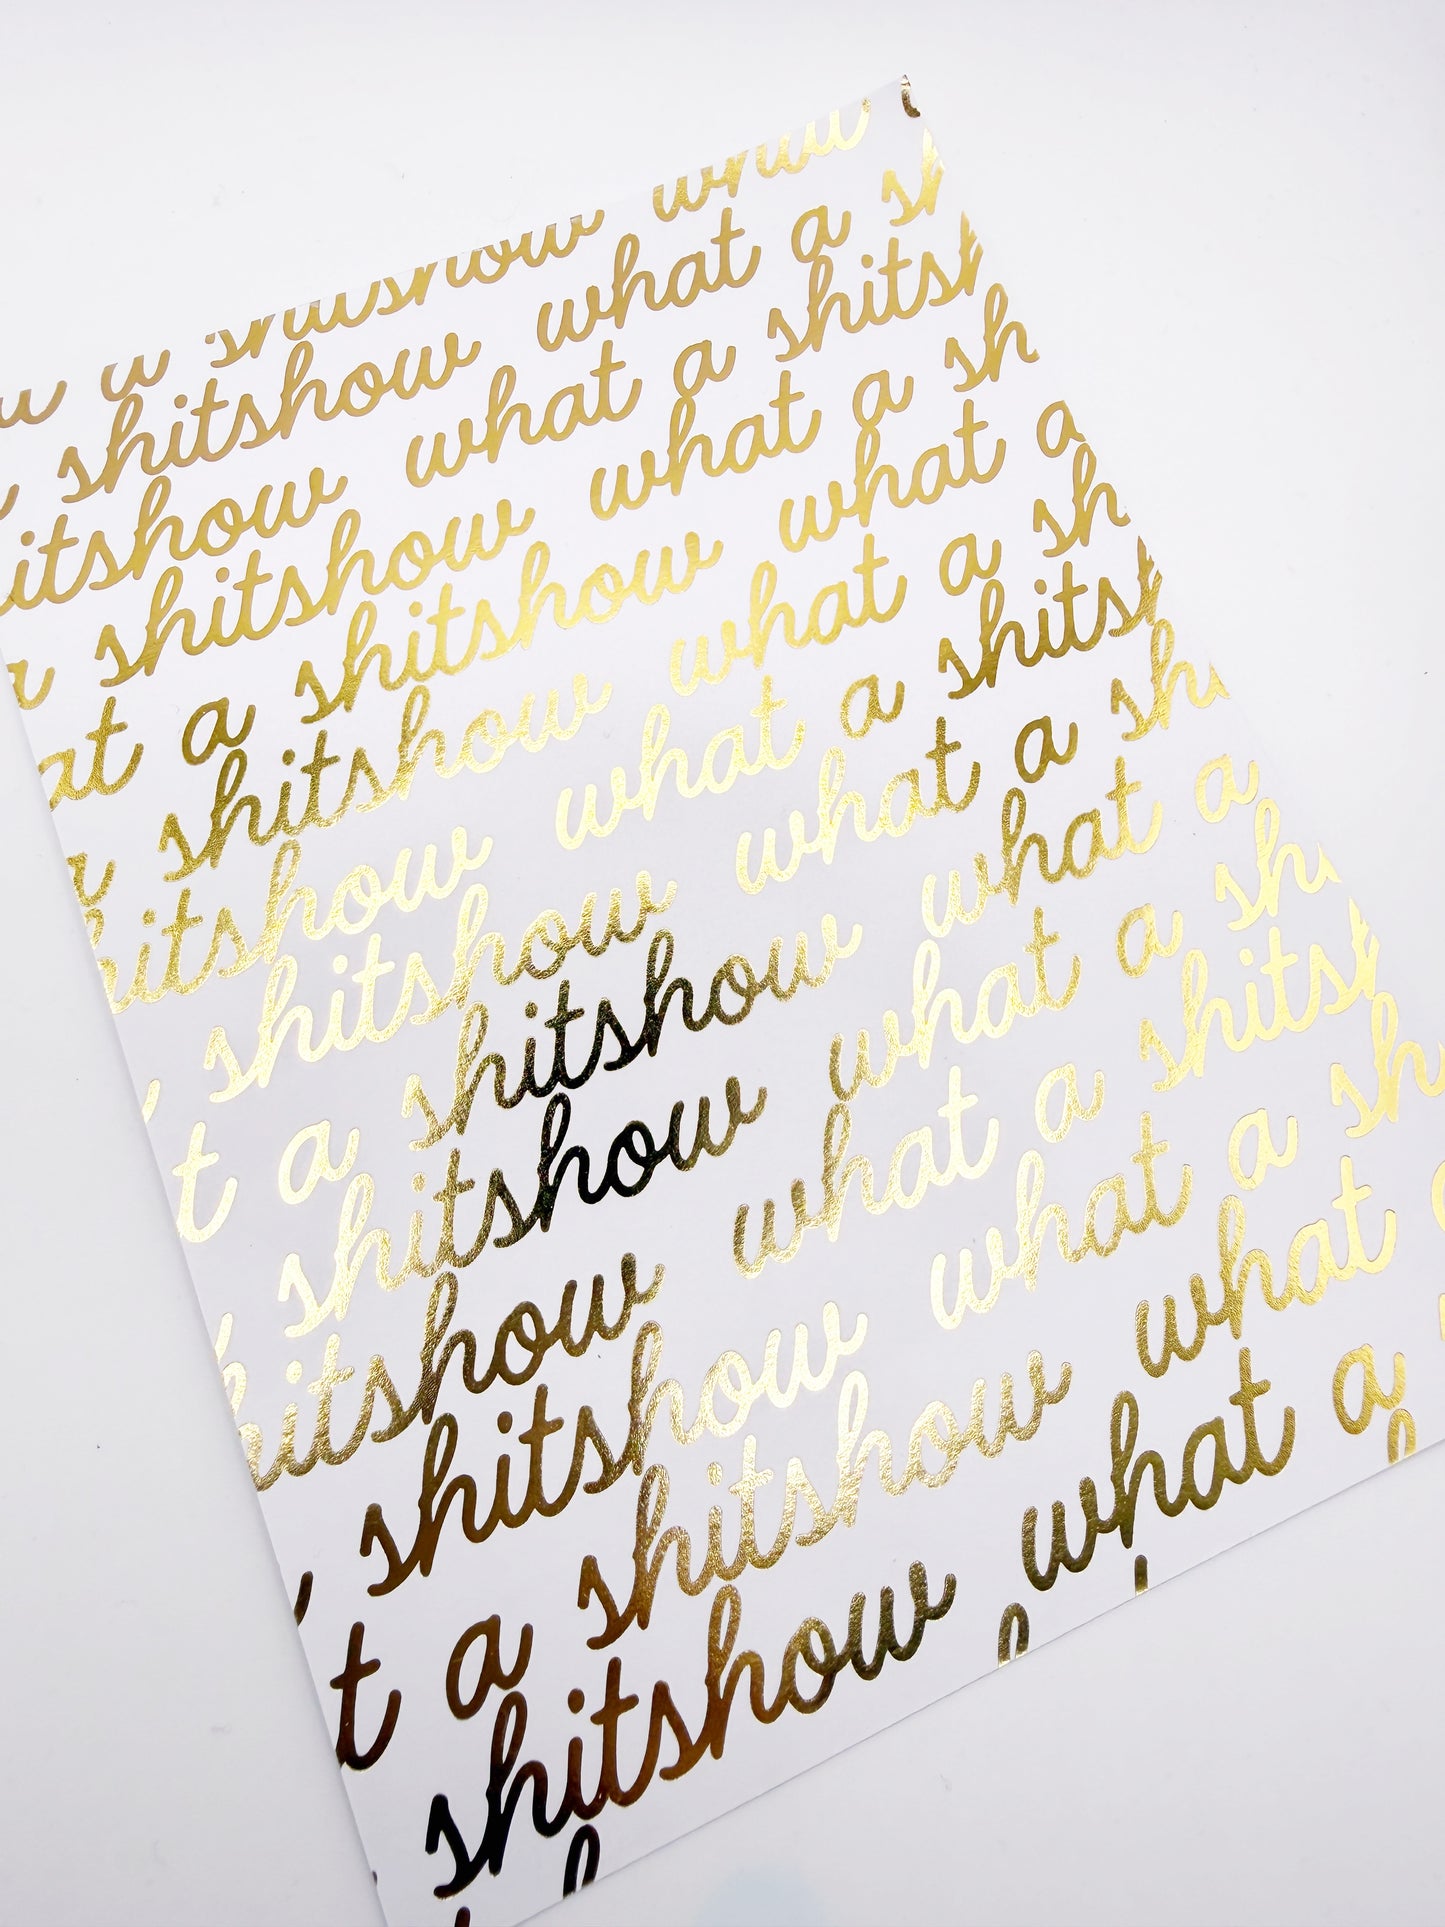 a shitshow what
a shitshow what a sh
itshow what a shitsh
a shitshow what a sh
at a shitshow what a
a shitshow what a sh
hitshow what a shitsh
shitshow what a sh
t a shitshow what a
shitshow what a sh
hitshow what a shitsh
shitshow what a sh
t a shitshow what
shitshow what a